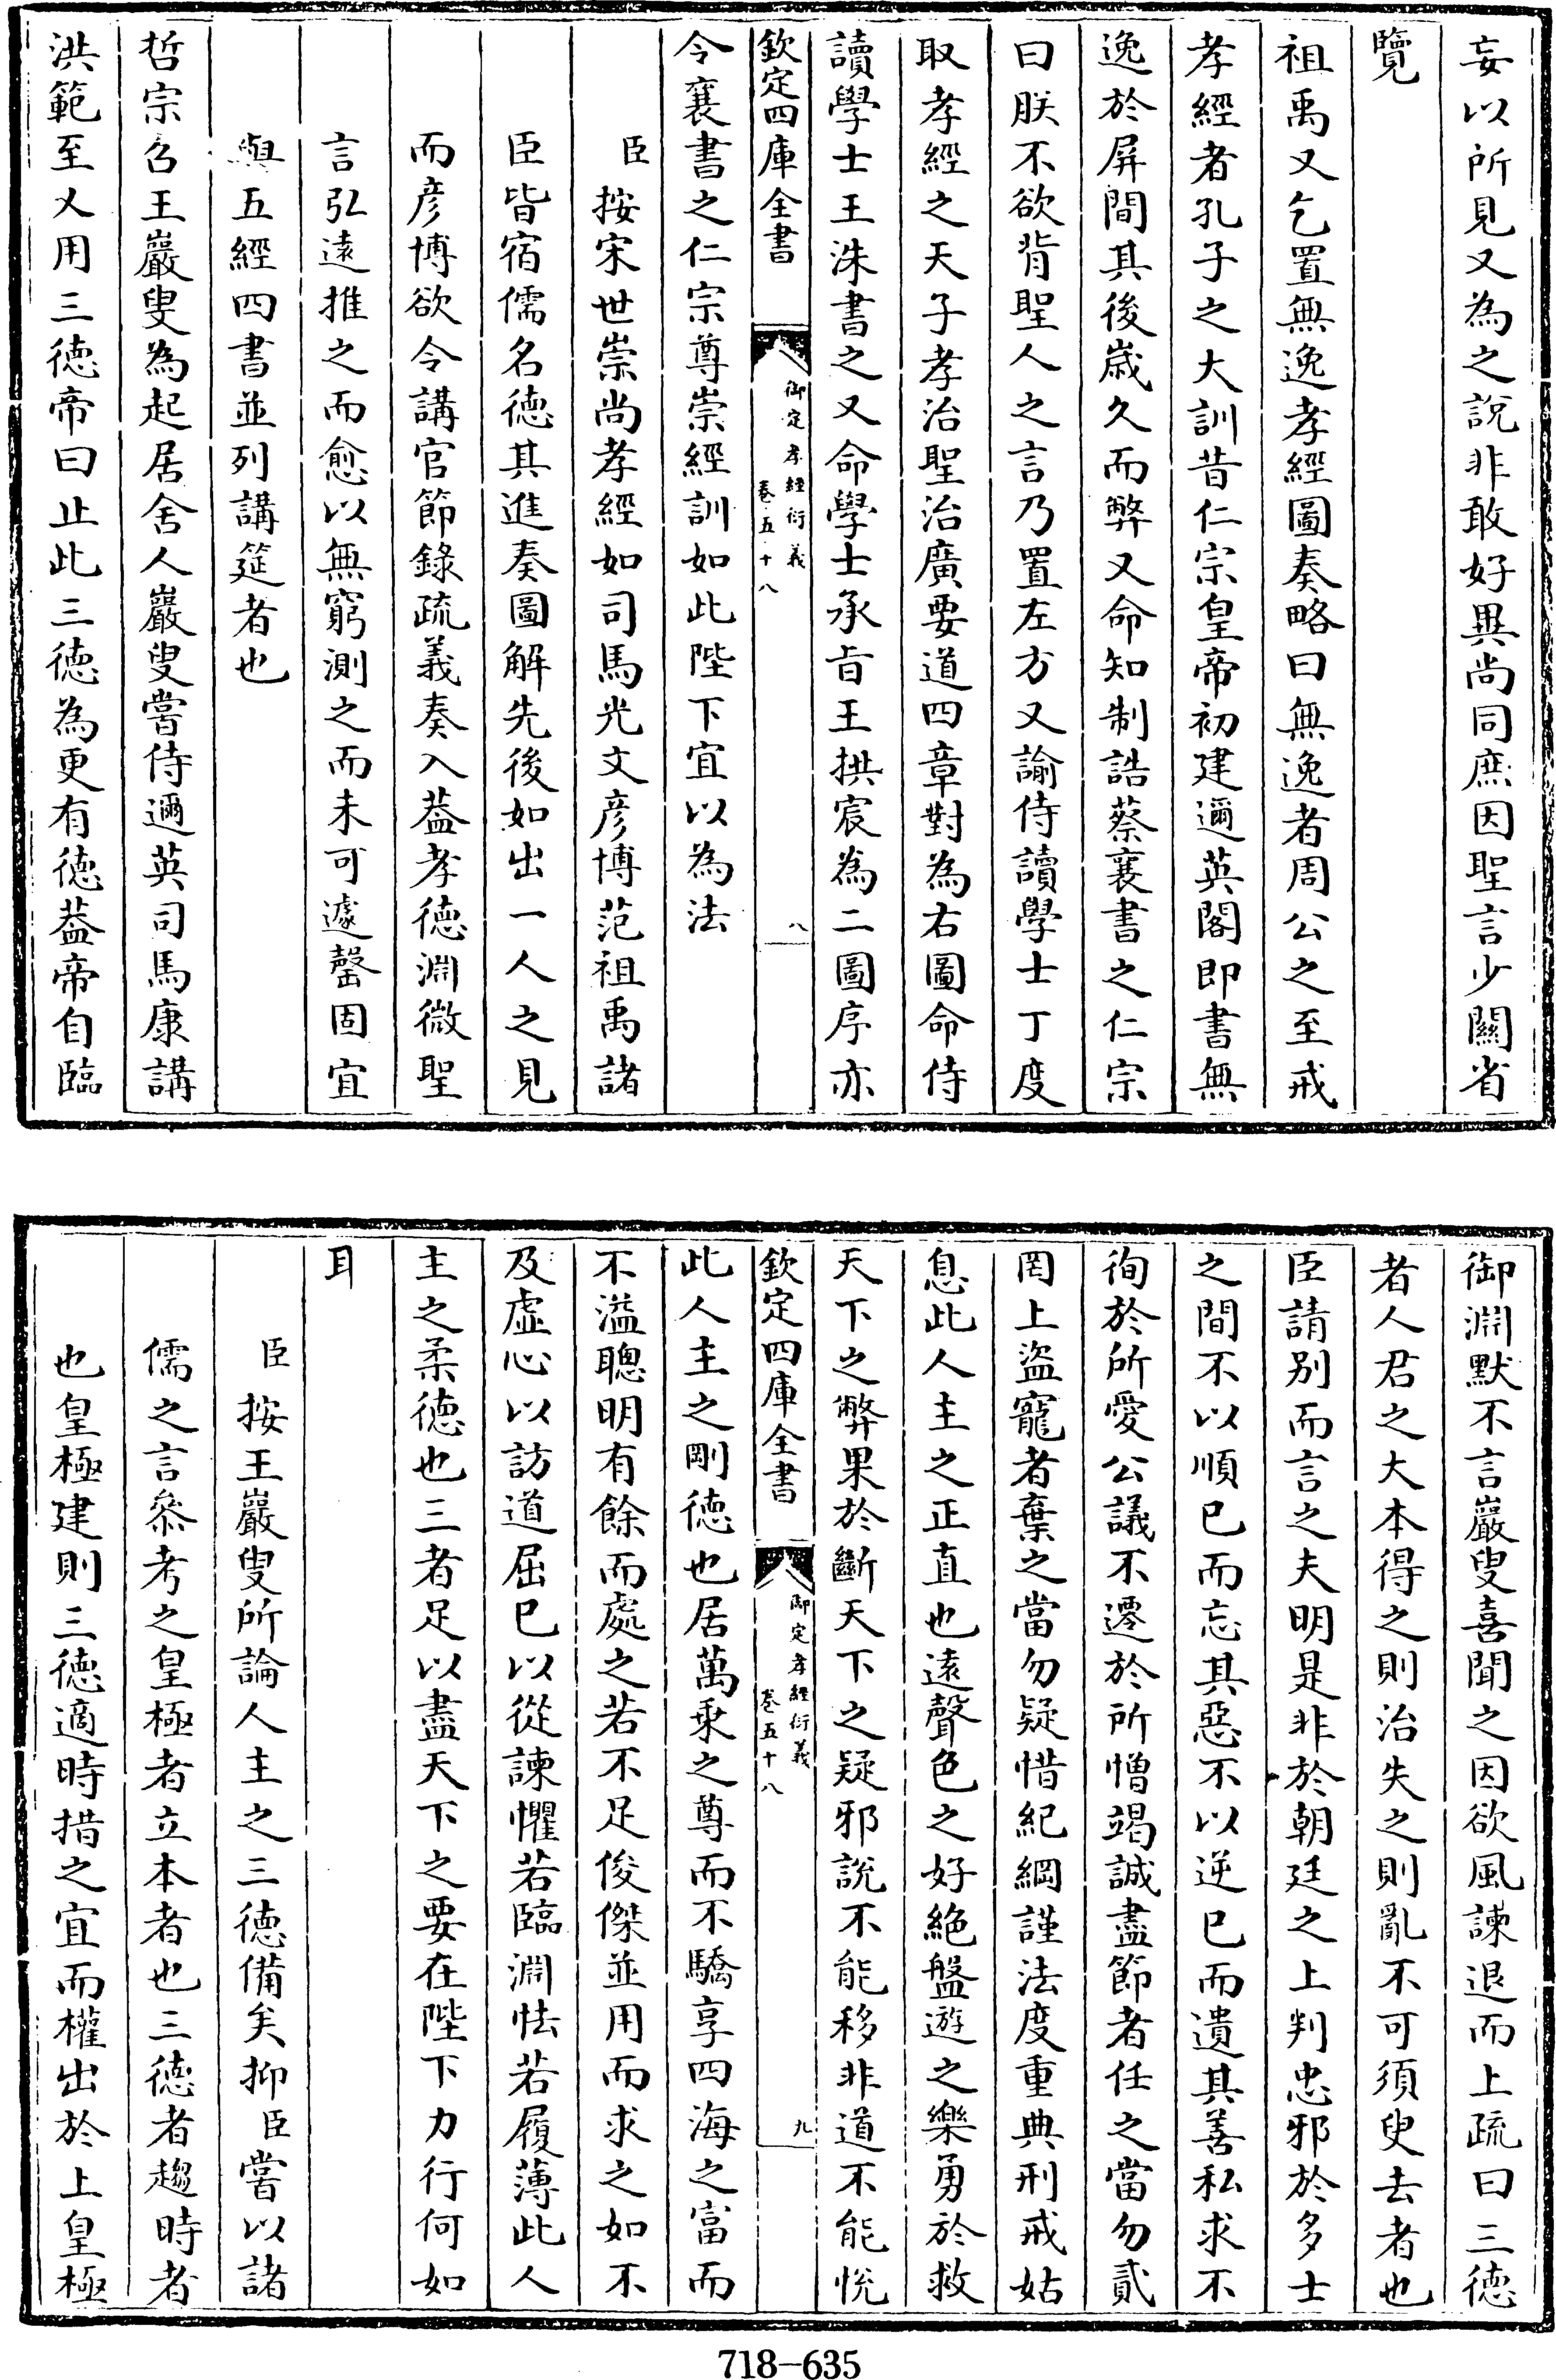 妄以所見又為之說非敢好異尚同庶因聖言少關省
覽
祖禹又乞置無逸孝經圖奏略曰無逸者周公之至戒
孝經者孔子之大訓昔仁宗皇帝初建邇英閣即書無
逸於屏間其後歲久而弊又命知制誥蔡襄書之仁宗
曰朕不欲背聖人之言乃置左方又諭侍讀學士丁度
取孝經之天子孝治聖治廣要道四章對為右圖命侍
讀學士王洙書之又命學士承旨王拱宸為二圖序亦
欽定四庫全書
御定孝經衍義
卷五十八
八
令襄書之仁宗尊崇經訓如此陛下宜以為法
臣按宋世崇尚孝經如司馬光文彥博范祖禹諸
臣皆宿儒名德其進奏圖解先後如出一人之見
而彥博欲令講官節錄疏義奏入葢孝德淵微聖
言弘遠推之而愈以無窮測之而未可遽罄固宜
與五經四書並列講筵者也
哲宗召王巖叟為起居舍人巖叟嘗侍邇英司馬康講
洪範至乂用三德帝曰止此三德為更有德葢帝自臨
御淵默不言巖叟喜聞之因欲風諫退而上疏曰三德
者人君之大本得之則治失之則亂不可須臾去者也
臣請别而言之夫明是非於朝廷之上判忠邪於多士
之間不以順已而忘其惡不以逆已而遺其善私求不
徇於所愛公議不遷於所憎竭誠盡節者任之當勿貳
罔上盜寵者棄之當勿疑惜紀綱謹法度重典刑戒姑
息此人主之正直也遠聲色之好絶盤遊之樂勇於救
天下之弊果於斷天下之疑邪說不能移非道不能悅
欽定四庫全書
御定孝經衍義
卷五十八
九
此人主之剛德也居萬乗之尊而不驕享四海之富而
不溢聰明有餘而處之若不足俊傑並用而求之如不
及虛心以訪道屈已以從諫懼若臨淵怯若履薄此人
主之柔德也三者足以盡天下之要在陛下力行何如
耳
臣按王巖叟所論人主之三德備矣抑臣嘗以諸
儒之言叅考之皇極者立本者也三德者趨時者
也皇極建則三德適時措之宜而權出於上皇極
718-635